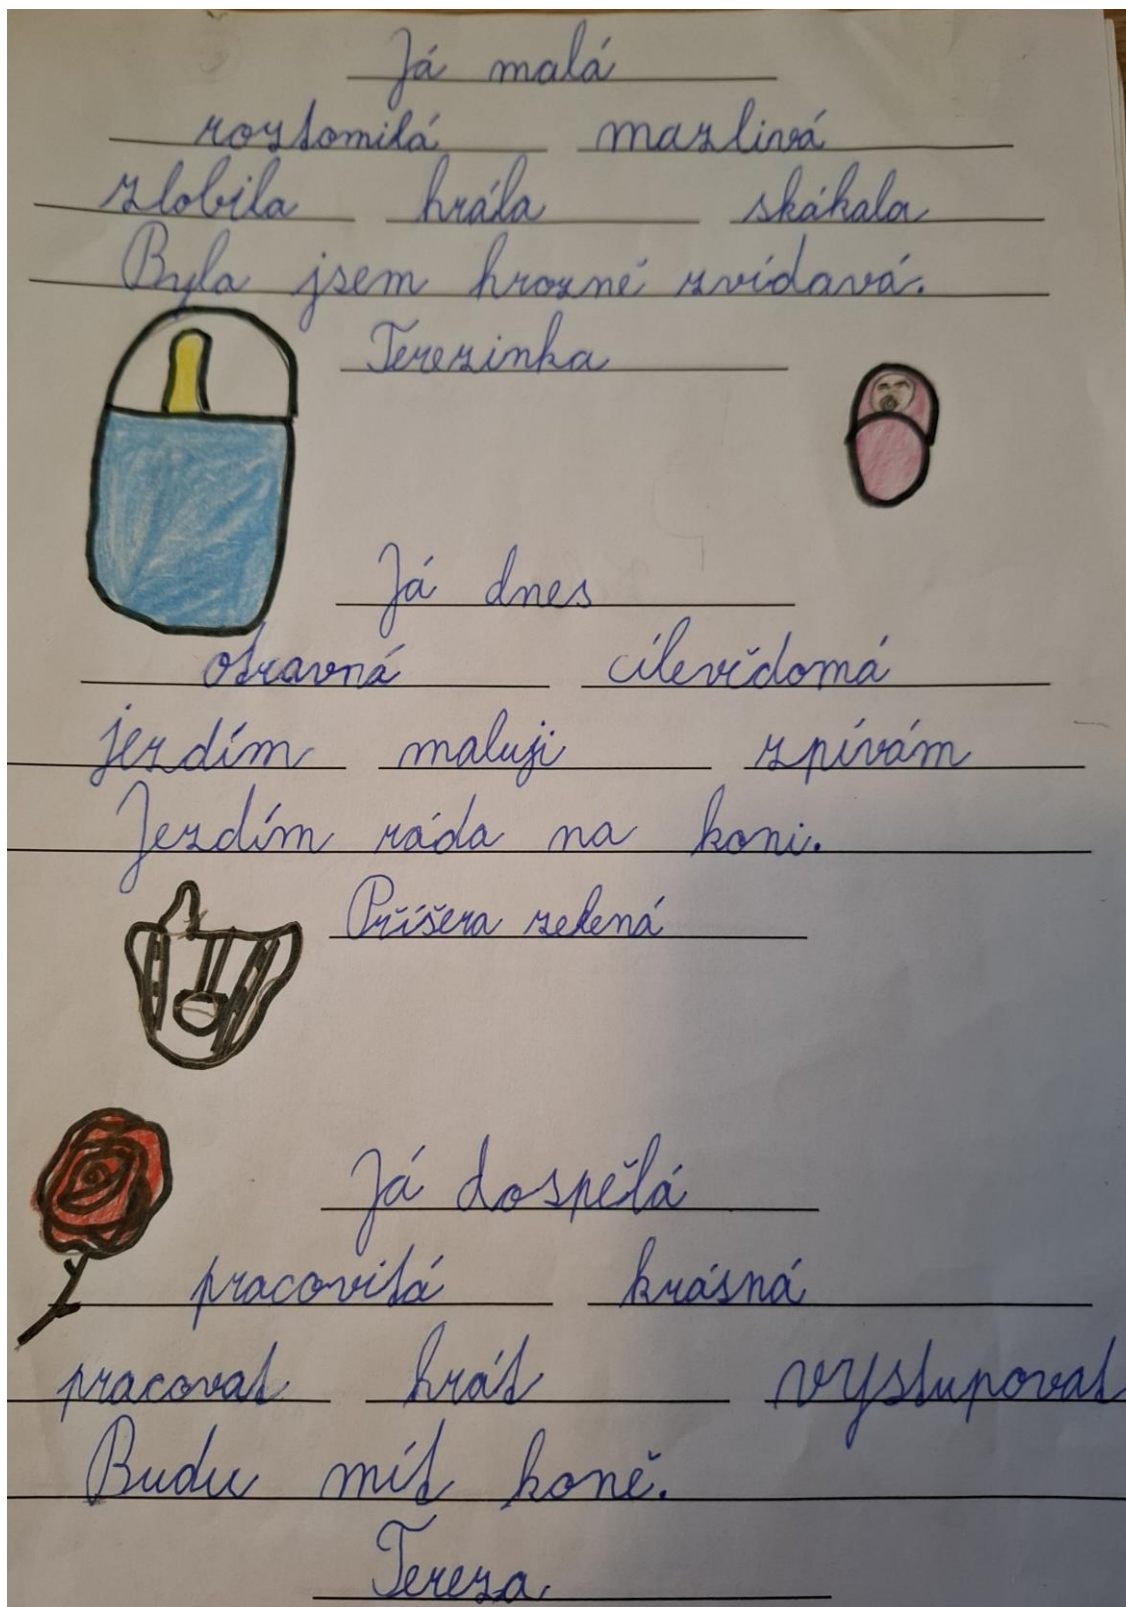 Já malá
roztomilá mazlivá
zlobila hrála skákala
Byla jsem hrozně zvídavá.
Terezinka
Já dnes
otravná cílevědomá
jezdím maluji zpívám
Jezdím ráda na koni.
Příšera zelená
Já dospělá
pracovitá krásná
pracovat hrát vystupovat
Budu mít koně.
Tereza